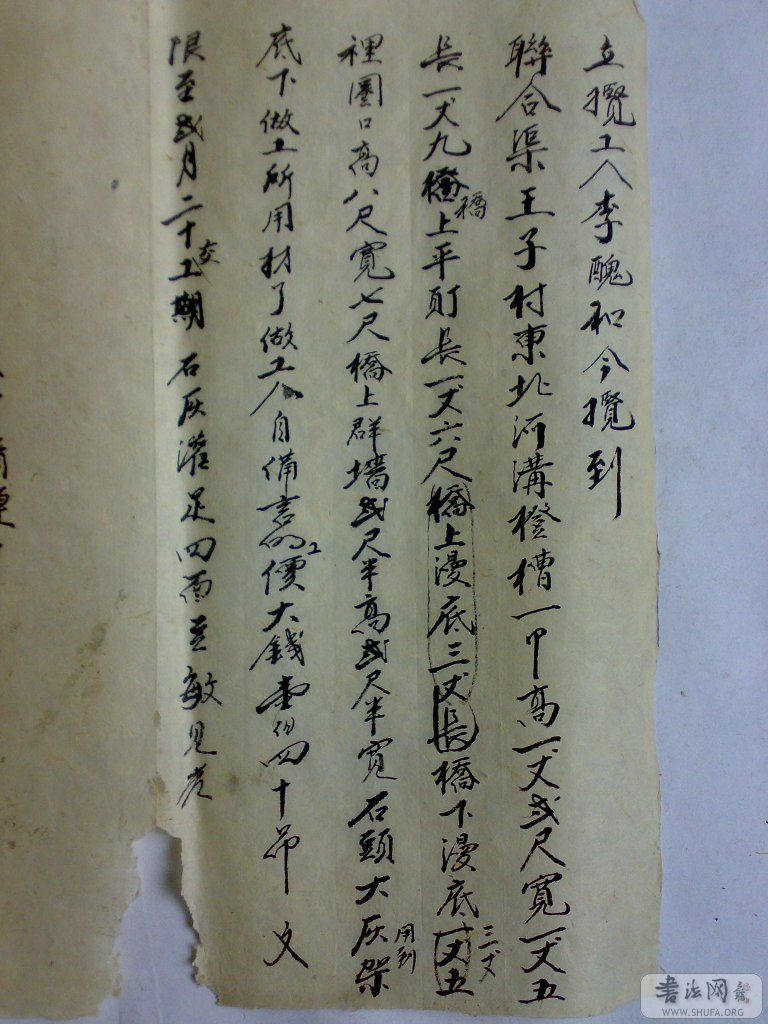 立攬工人李醜和今攬到
聯合渠王子村東北河溝橙槽一甲高一丈弍尺寬一丈五
長一丈九橋上平町長一丈六尺橋上漫底三丈長橋下漫底一丈五
橋
三丈
裡圈口高八尺寬七尺橋上群墙弍尺半高弍尺半寬石頭大灰架
用到
底下做工所用材了做工人自備言明價大錢壹佰四十吊文
工
限至弍月二十工期石灰灌足四面至敏見光
交
書法网
WWW.SHUFA.ORG